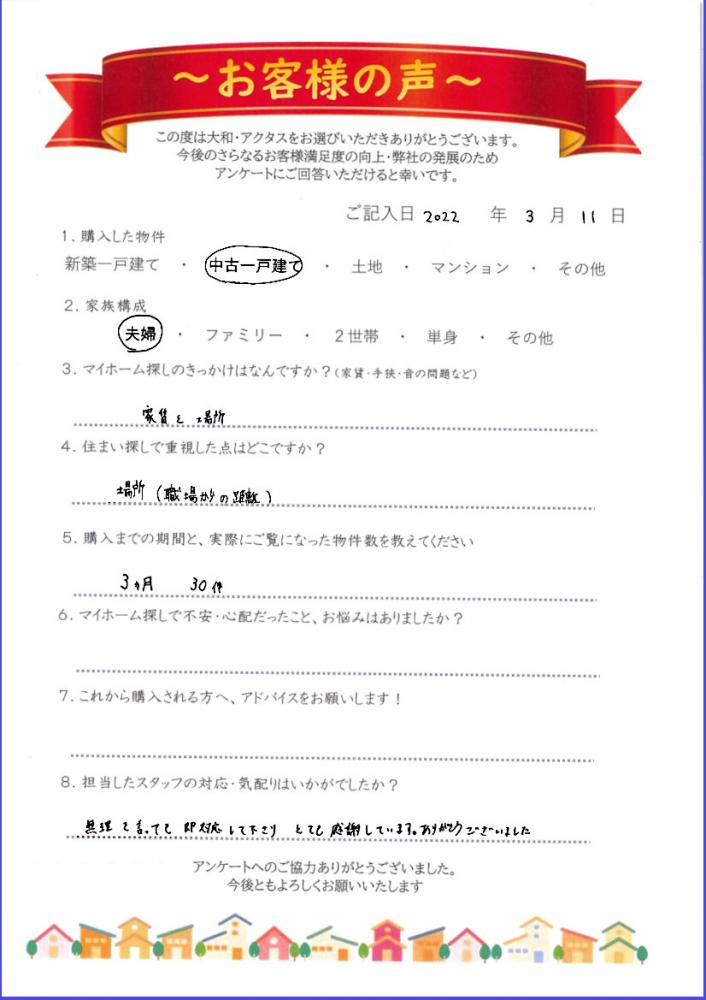 ～お客様の声～
この度は大和・アクタスをお選びいただきありがとうございます。
今後のさらなるお客様満足度の向上・弊社の発展のため
アンケートにご回答いただけると幸いです。
ご記入日 2022 年 3 月 11 日
1. 購入した物件
新築一戸建て ・ 中古一戸建て ・ 土地 ・ マンション ・ その他
2. 家族構成
夫婦 ・ ファミリー ・ 2世帯 ・ 単身 ・ その他
3. マイホーム探しのきっかけはなんですか？(家賃・手狭・音の問題など)
家賃と場所
4. 住まい探しで重視した点はどこですか？
場所（職場からの距離）
5. 購入までの期間と、実際にご覧になった物件数を教えてください
3ヵ月 30件
6. マイホーム探しで不安・心配だったこと、お悩みはありましたか？
7. これから購入される方へ、アドバイスをお願いします！
8. 担当したスタッフの対応・気配りはいかがでしたか？
無理を言っても即対応して下さりとても感謝しています。ありがとうございました
アンケートへのご協力ありがとうございました。
今後ともよろしくお願いいたします